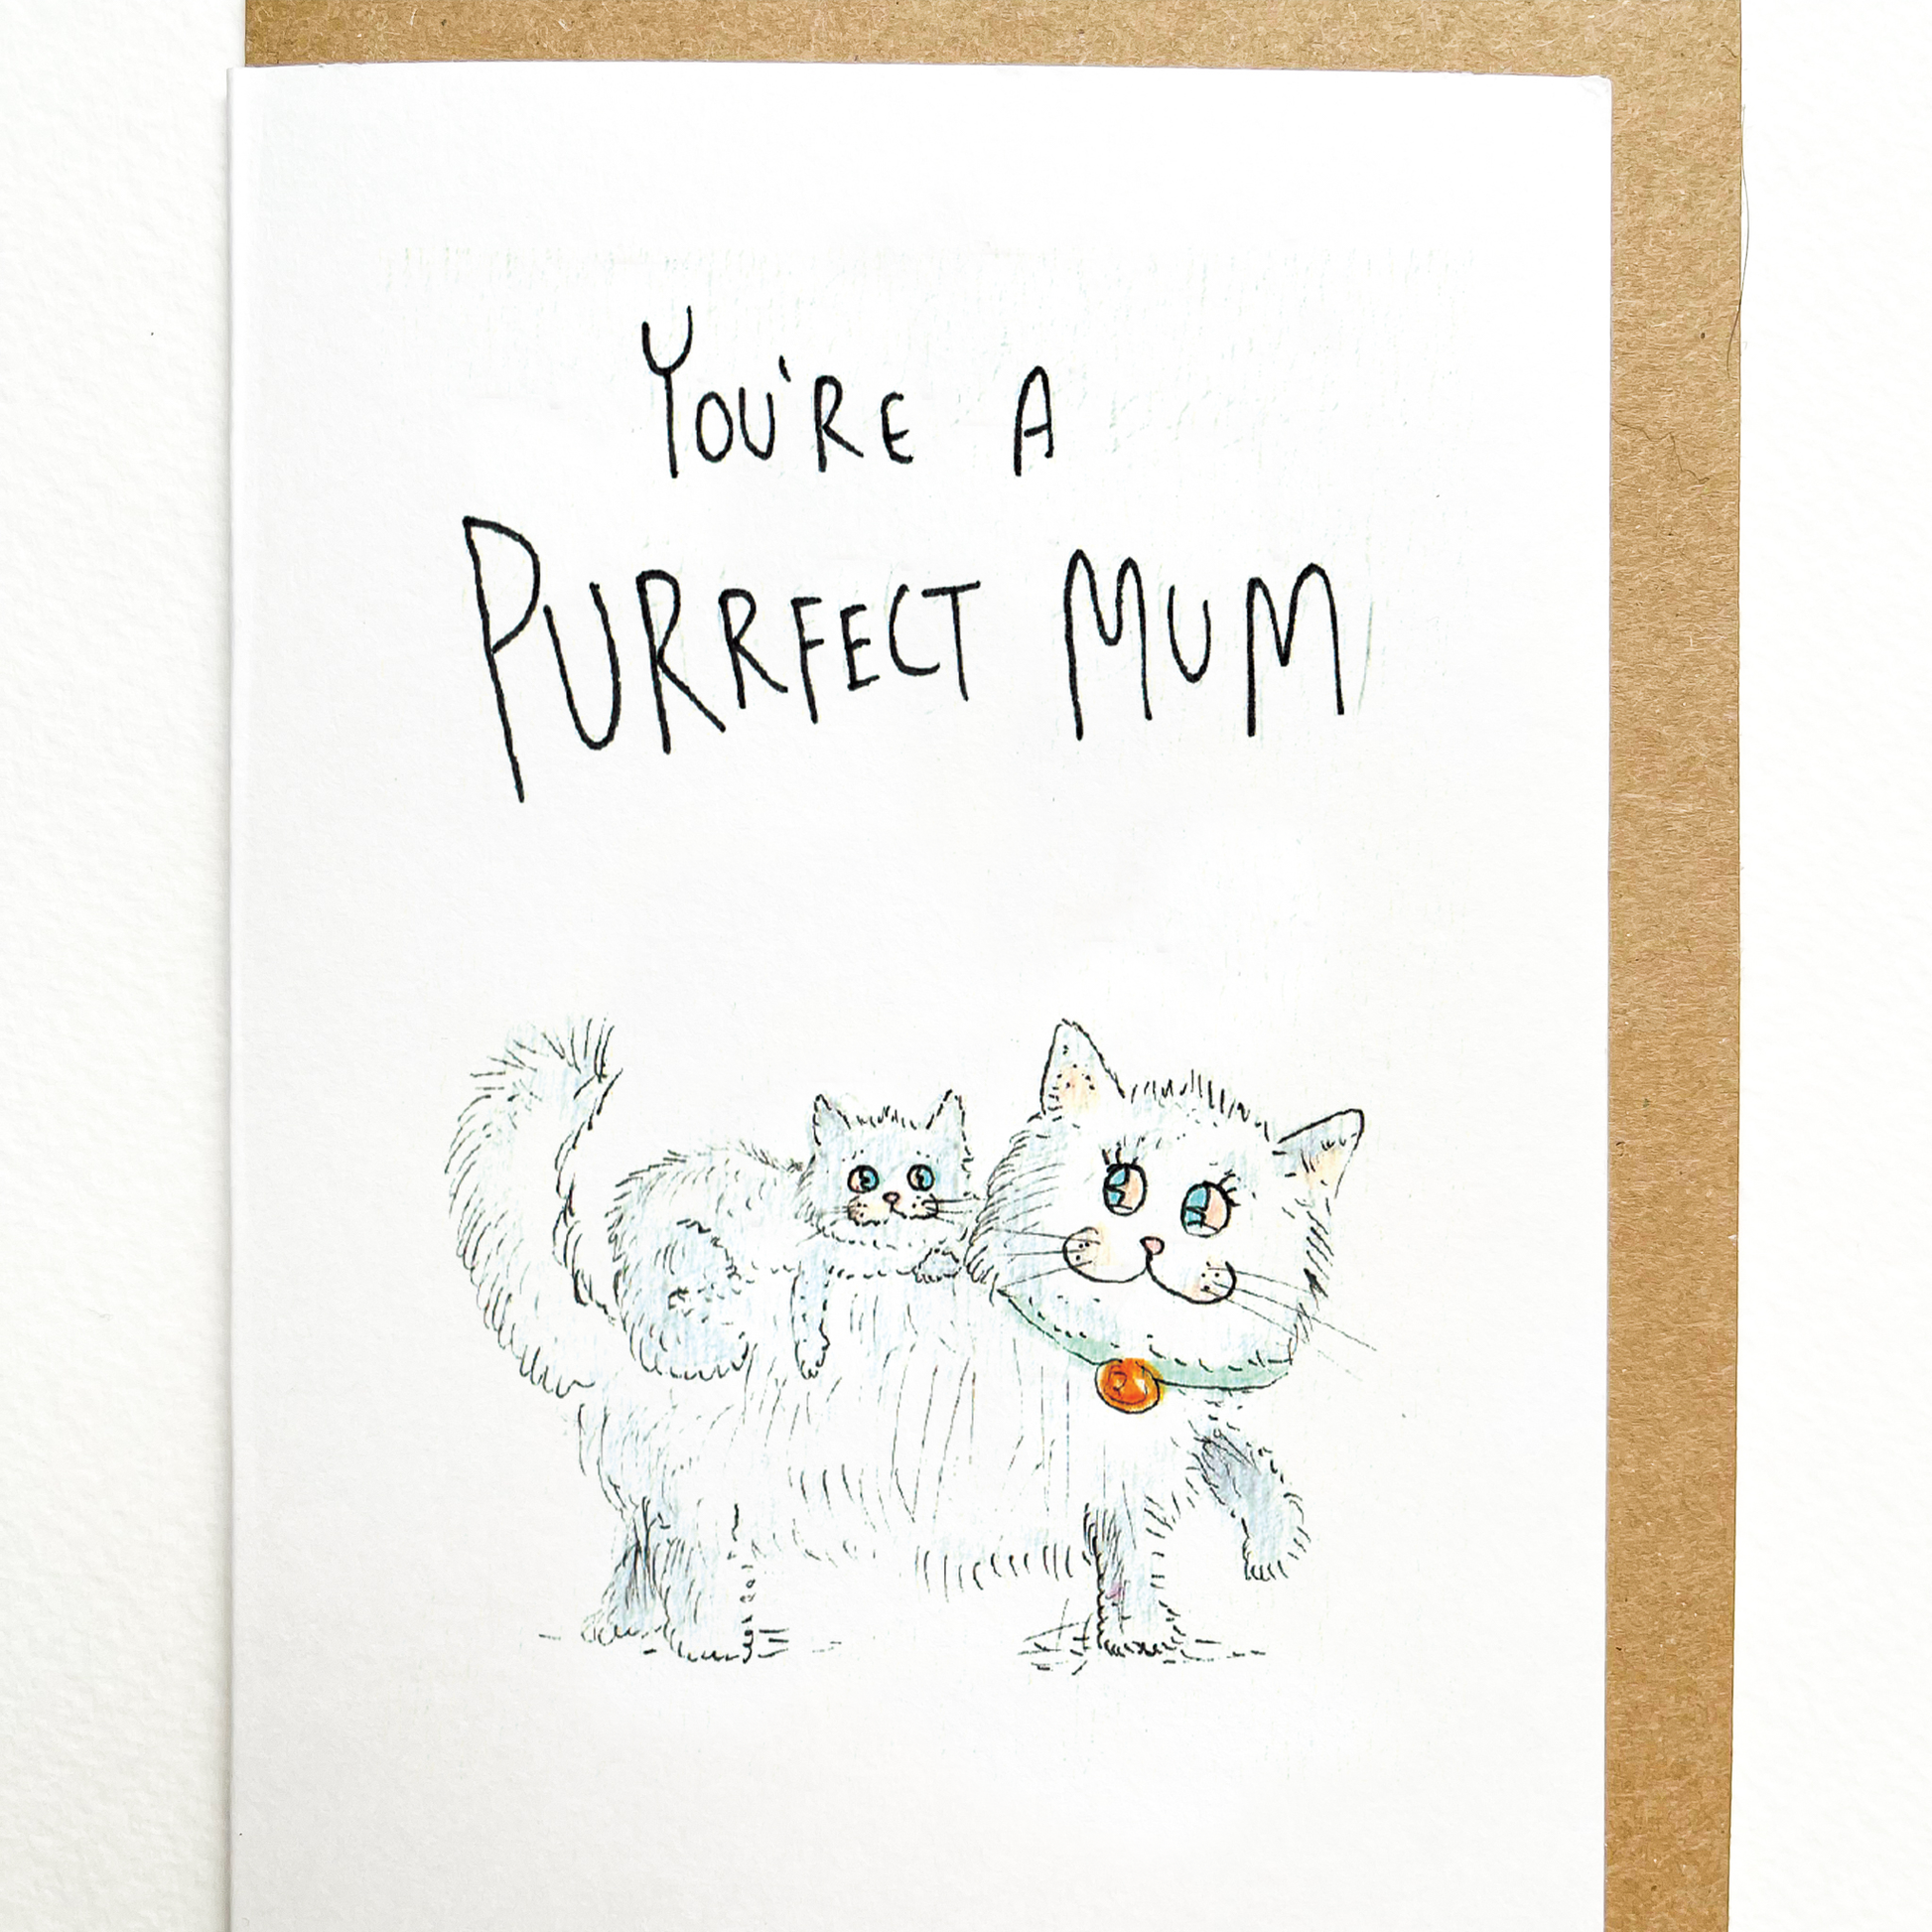 You're a
Purrfect Mum